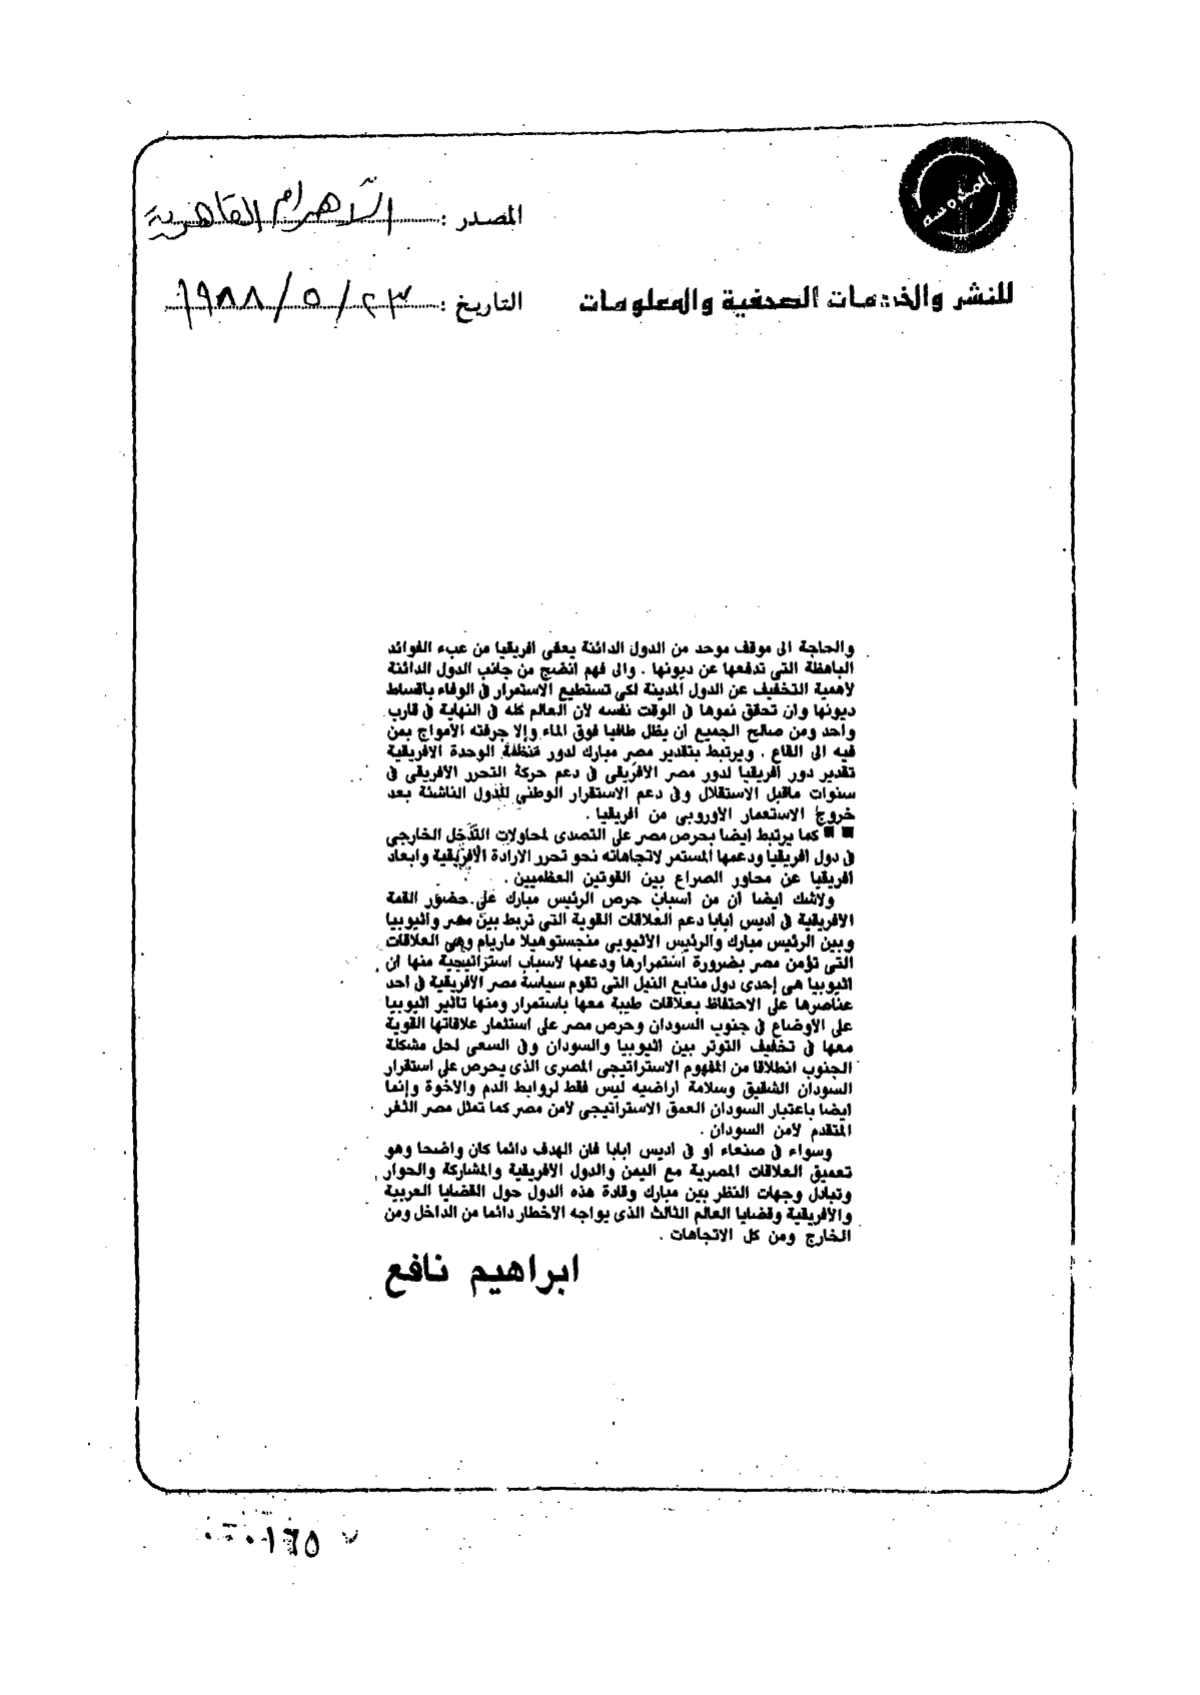 المحروسة
المصدر : الأهرام القاهرية
للنشر والخدمات الصحفية والمعلومات
التاريخ : ٢٣ / ٥ / ١٩٨٨
والحاجة الى موقف موحد من الدول الدائنة يعفى افريقيا من عبء الفوائد
الباهظة التى تدفعها عن ديونها . والى فهم انضج من جانب الدول الدائنة
لأهمية التخفيف عن الدول المدينة لكى تستطيع الاستمرار فى الوفاء باقساط
ديونها وان تحقق نموها فى الوقت نفسه لأن العالم كله فى النهاية فى قارب
واحد ومن صالح الجميع أن يظل طافيا فوق الماء وإلا جرفته الأمواج بمن
فيه الى القاع . ويرتبط بتقدير مصر مبارك لدور منظمة الوحدة الافريقية
تقدير دور أفريقيا لدور مصر الأفريقى فى دعم حركة التحرر الأفريقى فى
سنوات ماقبل الاستقلال وفى دعم الاستقرار الوطنى للدول الناشئة بعد
خروج الاستعمار الأوروبى من افريقيا .
■ ■ كما يرتبط ايضا بحرص مصر على التصدى لمحاولات التدخل الخارجى
فى دول افريقيا ودعمها المستمر لاتجاهاته نحو تحرر الارادة الأفريقية وابعاد
افريقيا عن محاور الصراع بين القوتين العظميين .
ولاشك ايضا أن من اسباب حرص الرئيس مبارك على حضور القمة
الافريقية فى اديس ابابا دعم العلاقات القوية التى تربط بين مصر واثيوبيا
وبين الرئيس مبارك والرئيس الاثيوبى منجستو هيلا ماريام وهى العلاقات
التى تؤمن مصر بضرورة استمرارها ودعمها لأسباب استراتيجية منها ان
اثيوبيا هى إحدى دول منابع النيل التى تقوم سياسة مصر الأفريقية فى احد
عناصرها على الاحتفاظ بعلاقات طيبة معها باستمرار ومنها تاثير اثيوبيا
على الأوضاع فى جنوب السودان وحرص مصر على استثمار علاقاتها القوية
معها فى تخفيف التوتر بين اثيوبيا والسودان وفى السعى لحل مشكلة
الجنوب انطلاقا من المفهوم الاستراتيجى المصرى الذى يحرص على استقرار
السودان الشقيق وسلامة اراضيه ليس فقط لروابط الدم والأخوة وإنما
ايضا باعتبار السودان العمق الاستراتيجى لأمن مصر كما تمثل مصر الثغر
المتقدم لأمن السودان .
وسواء فى صنعاء او فى اديس ابابا فان الهدف دائما كان واضحا وهو
تعميق العلاقات المصرية مع اليمن والدول الأفريقية والمشاركة والحوار
وتبادل وجهات النظر بين مبارك وقادة هذه الدول حول القضايا العربية
والأفريقية وقضايا العالم الثالث الذى يواجه الأخطار دائما من الداخل ومن
الخارج ومن كل الاتجاهات .
ابراهيم نافع